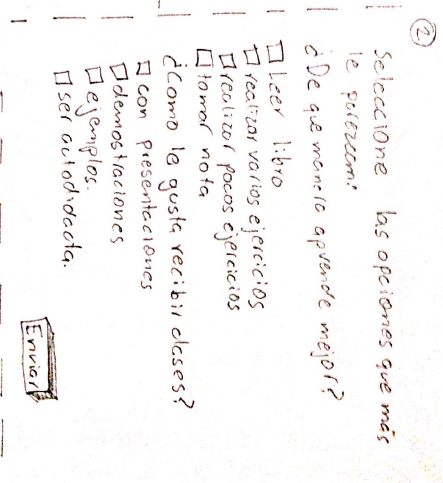 ②
Seleccione las opciones que más
le parezcan:
¿De que manera aprende mejor?
□ Leer libro
□ realizar varios ejercicios
□ realizar pocos ejercicios
□ tomar nota
¿Como le gusta recibir clases?
□ con presentaciones
□ demostraciones
□ ejemplos.
□ ser autodidacta.
Enviar